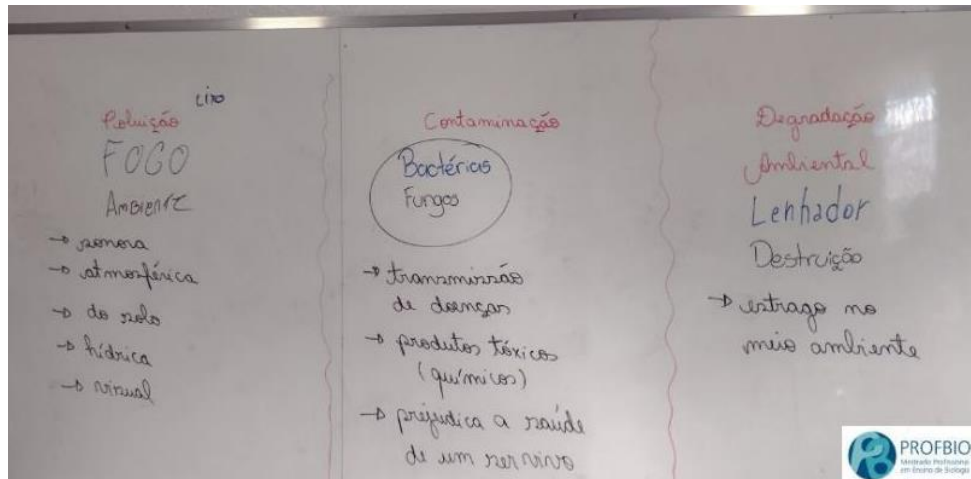 lixo
Poluição
FOGO
AMBIENTE
→ sonora
→ atmosférica
→ do solo
→ hídrica
→ visual
Contaminação
Bactérias
Fungos
→ transmissão
de doenças
→ produtos tóxicos
(químicos)
→ prejudica a saúde
de um ser vivo
Degradação
Ambiental
Lenhador
Destruição
→ estrago no
meio ambiente
PROFBIO
Mestrado Profissional
em Ensino de Biologia